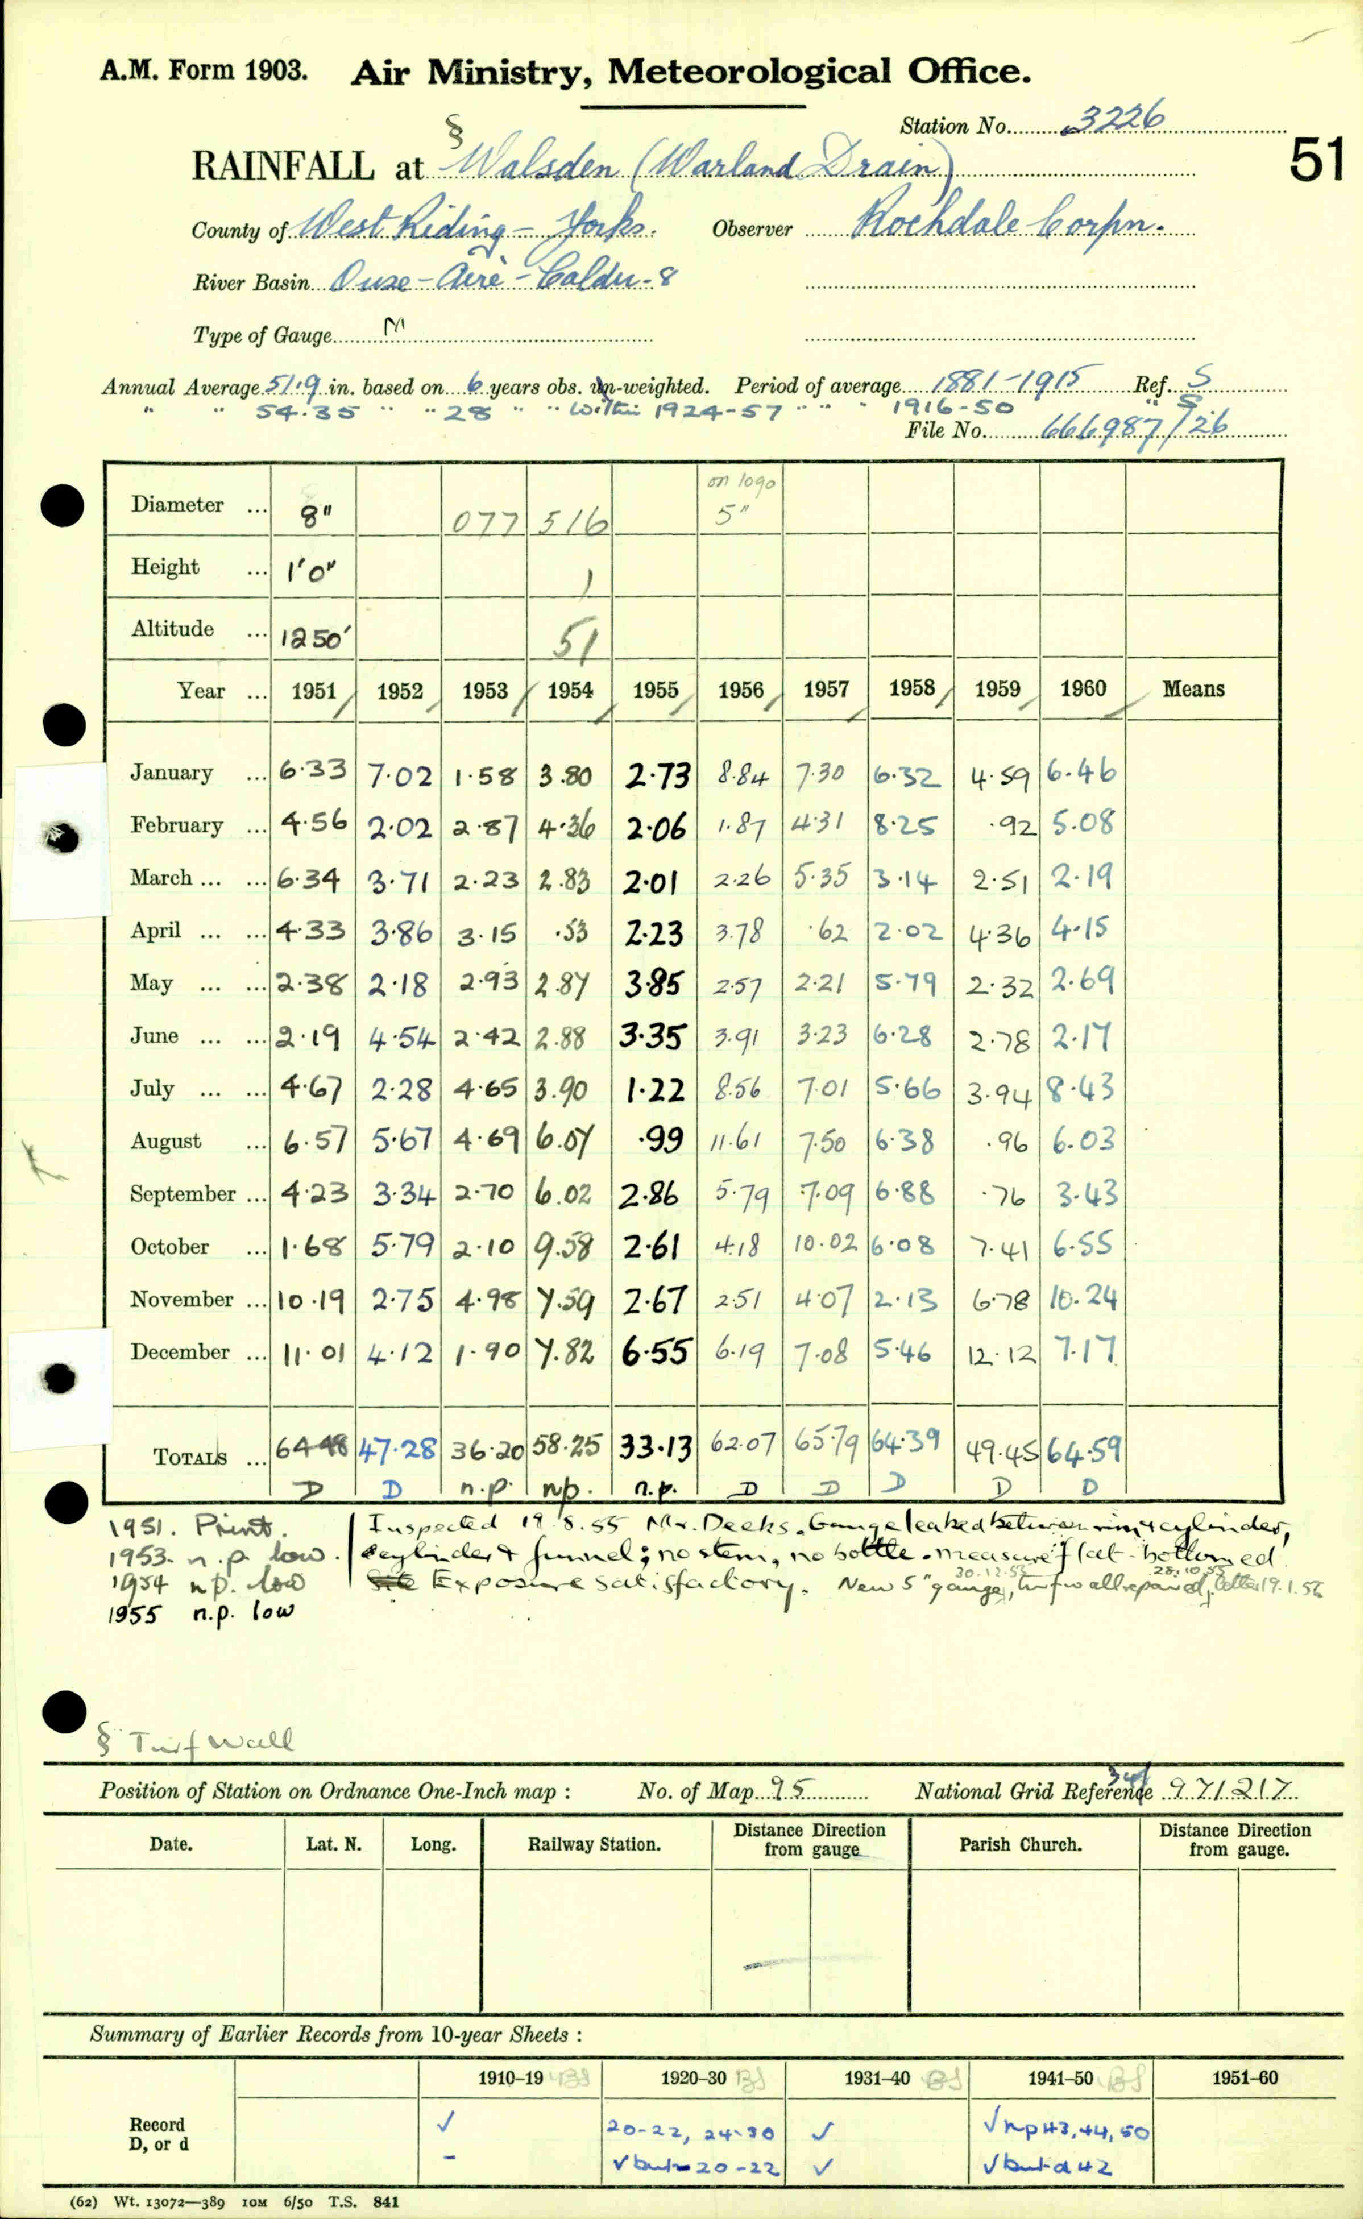 A.M. Form 1903. Air Ministry, Meteorological Office.
Station No. 3226
§
RAINFALL at Walsden (Warland Drain)
51
County of West Riding - Yorks. Observer Rochdale Corpn.
River Basin Ouse - Aire - Calder - 8
Type of Gauge M
Annual Average 51.9 in. based on 6 years obs. un-weighted. Period of average 1881-1915 Ref. S
" " 54.35 " " 28 " " within 1924-57 " " " 1916-50 " S.
File No. 666987/26
on logo
Diameter ... 8" 077 516 5"
Height ... 1'0" 1
Altitude ... 1250' 51
Year ... 1951 1952 1953 1954 1955 1956 1957 1958 1959 1960 Means
January ... 6.33 7.02 1.58 3.80 2.73 8.84 7.30 6.32 4.59 6.46
February ... 4.56 2.02 2.87 4.36 2.06 1.87 4.31 8.25 .92 5.08
March ... ... 6.34 3.71 2.23 2.83 2.01 2.26 5.35 3.14 2.51 2.19
April ... ... 4.33 3.86 3.15 .53 2.23 3.78 .62 2.02 4.36 4.15
May ... ... 2.38 2.18 2.93 2.87 3.85 2.57 2.21 5.79 2.32 2.69
June ... ... 2.19 4.54 2.42 2.88 3.35 3.91 3.23 6.28 2.78 2.17
July ... ... 4.67 2.28 4.65 3.90 1.22 8.56 7.01 5.66 3.94 8.43
August ... 6.57 5.67 4.69 6.07 .99 11.61 7.50 6.38 .96 6.03
September ... 4.23 3.34 2.70 6.02 2.86 5.79 7.09 6.88 .76 3.43
October ... 1.68 5.79 2.10 9.58 2.61 4.18 10.02 6.08 7.41 6.55
November ... 10.19 2.75 4.98 7.59 2.67 2.51 4.07 2.13 6.78 10.24
December ... 11.01 4.12 1.90 7.82 6.55 6.19 7.08 5.46 12.12 7.17
TOTALS ... 64.48 47.28 36.20 58.25 33.13 62.07 65.79 64.39 49.45 64.59
D D n.p. n.p. n.p. D D D D D
1951. Print. Inspected 19.8.55 Mr. Deeks. Gauge leaked between rim & cylinder,
1953. n.p. low. cylinder & funnel; no stem, no bottle - measure flat-bottomed
30.12.55 28.10.55
1954 n.p. low Site Exposure satisfactory. New 5" gauge, turf wall repaired, letter 19.1.56
1955 n.p. low
§ Turf Wall
Position of Station on Ordnance One-Inch map : No. of Map 95 National Grid Reference 34/ 971217
Date. Lat. N. Long. Railway Station. Distance Direction from gauge Parish Church. Distance Direction from gauge.
Summary of Earlier Records from 10-year Sheets :
1910-19 BS 1920-30 BS 1931-40 BS 1941-50 BS 1951-60
Record ✓ 20-22, 24-30 ✓ ✓ np 43, 44, 50
D, or d - ✓ but - 20-22 ✓ ✓ but d 42
(62) Wt. 13072—389 10M 6/50 T.S. 841